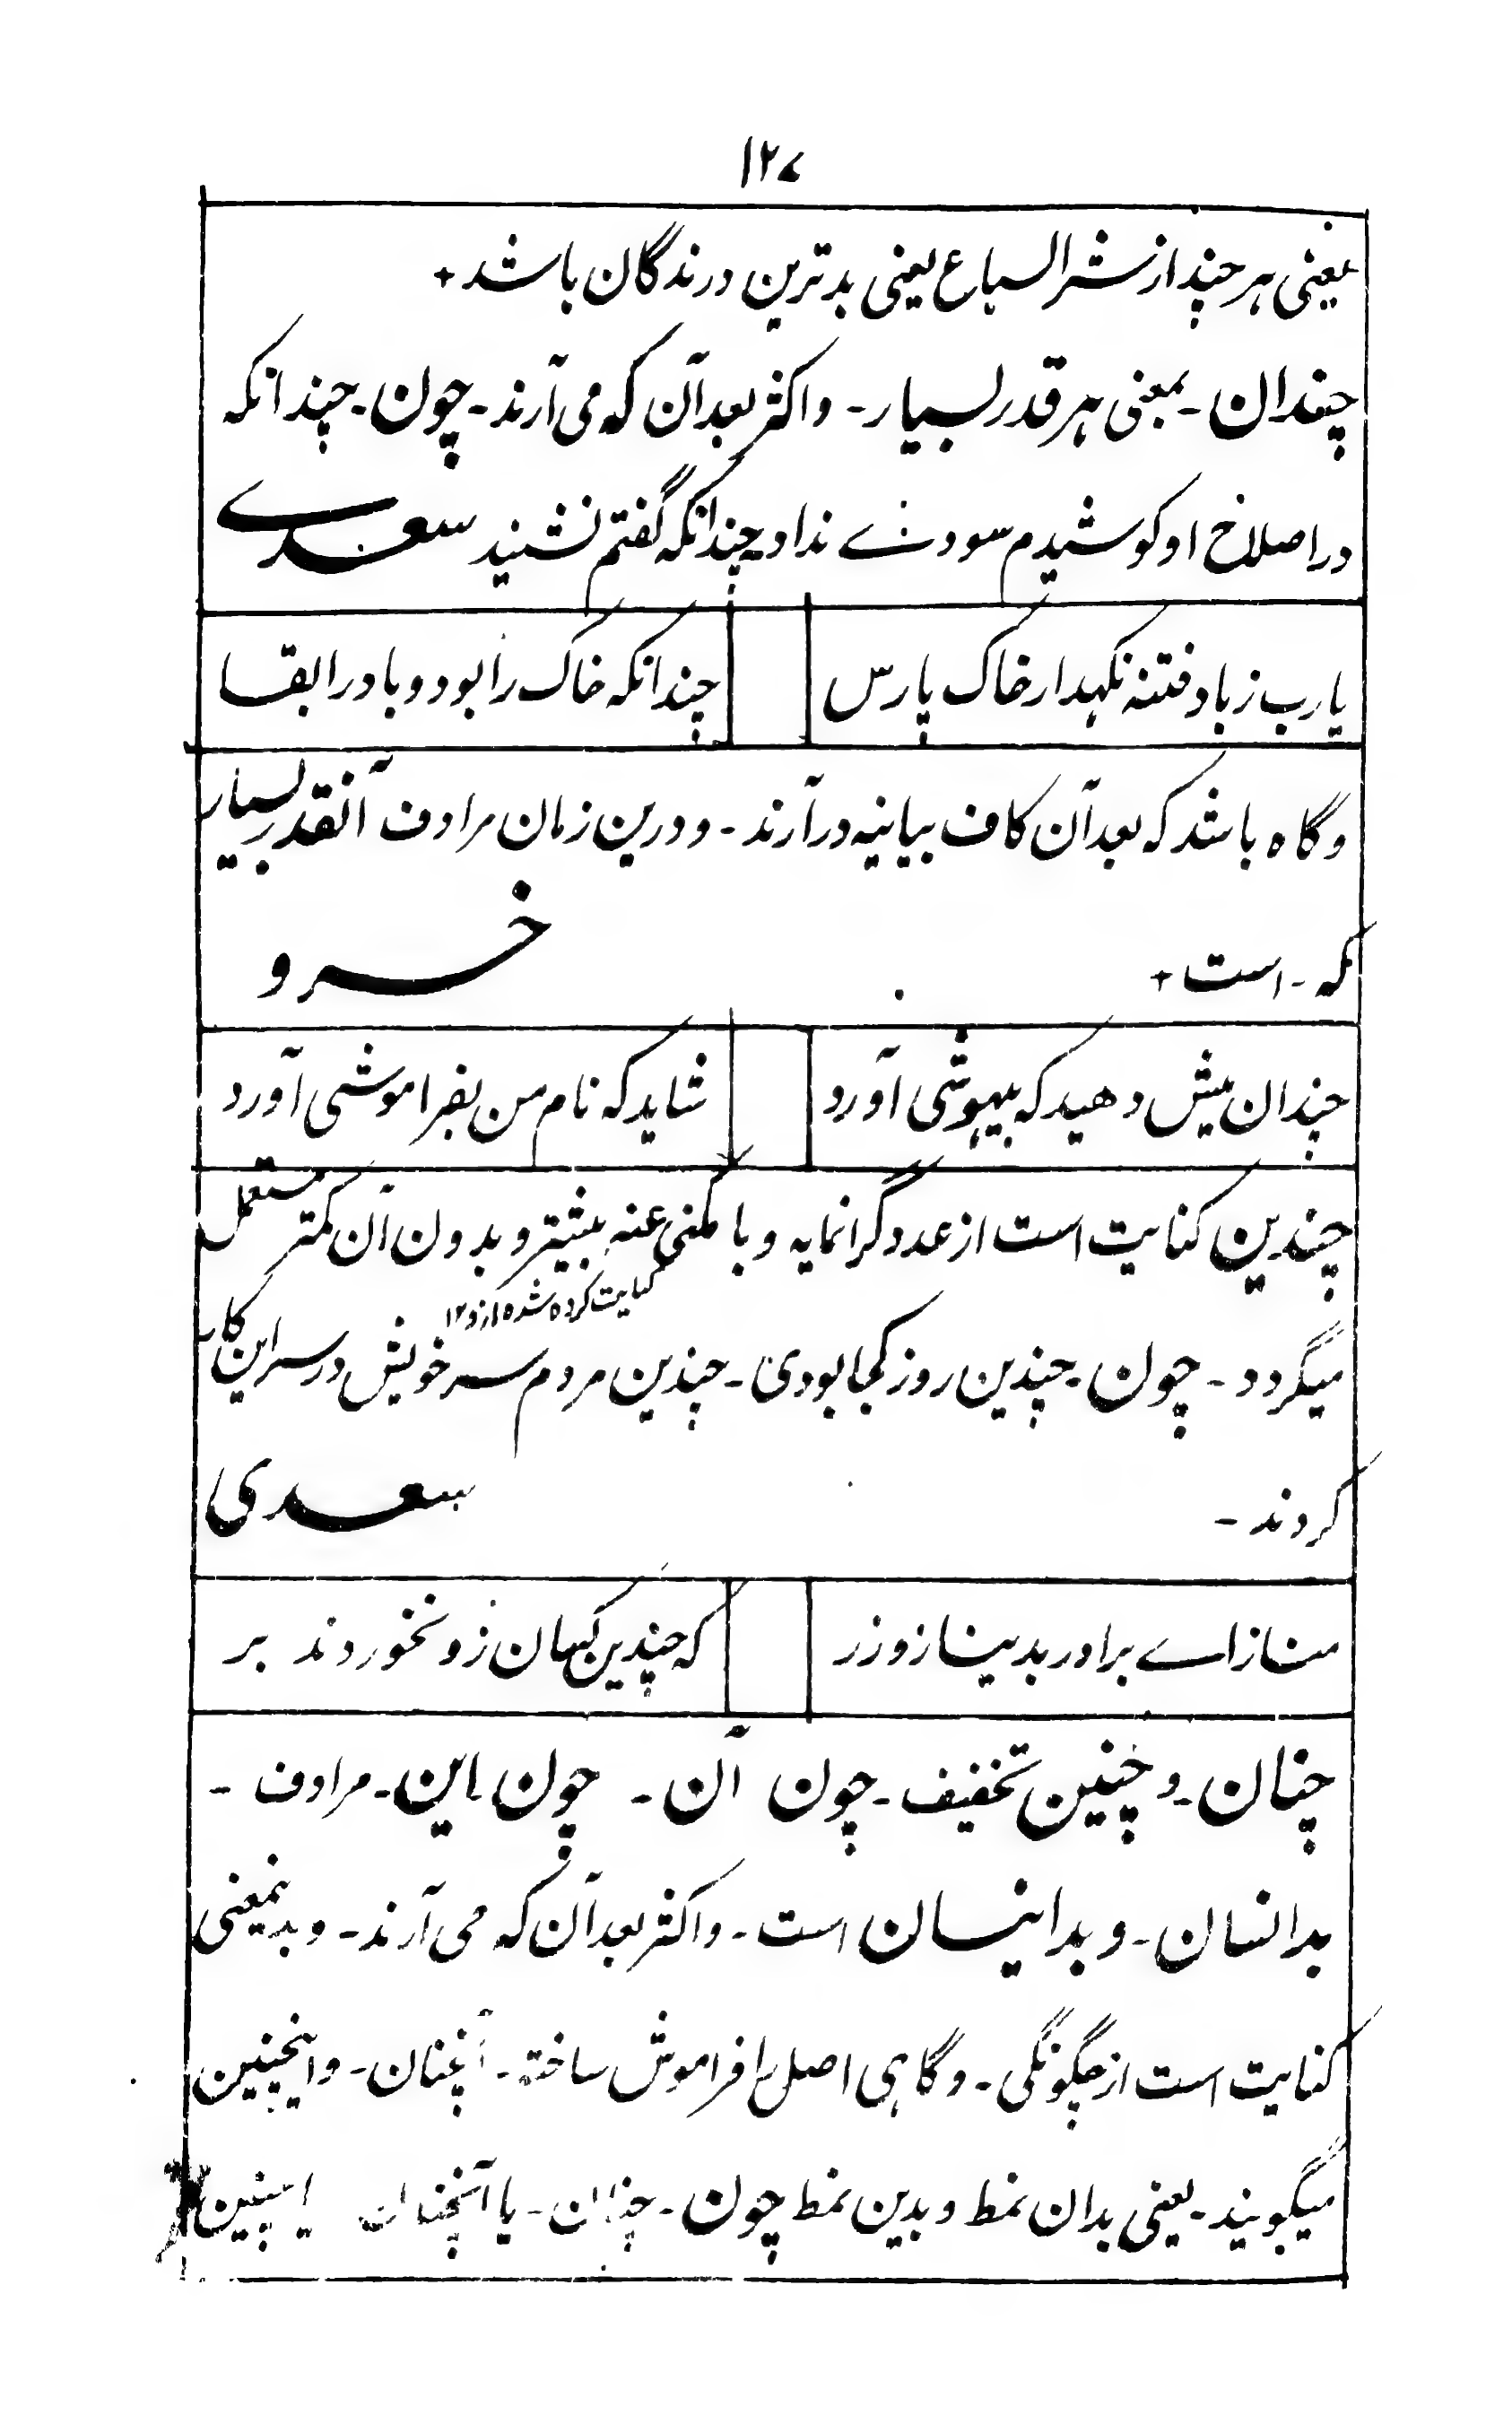 ۱۲۷
یعنی هر چند از شر السباع یعنی بدترین درندگان باشد+
چندان - بمعنی هر قدر بسیار - و اکثر بعد آن که می آرند - چون - چندانکه
در اصلاح او کوشیدم سودے نداد چندانکه گفتم نشنید سعدے
یارب ز باد فتنه نگهدار خاک پارس چندانکه خاک را بود و باد را بقا
و گاه باشد که بعد آن کاف بیانیه در آرند - و درین زمان مرادف آنقدر بسیار
که - است + خسرو
چندان میش دهید که بیهوشی آورد شاید که نام من بفراموشی آورد
چندین کنایت است از عدد گرانمایه و با مکنی عنه بیشتر و بدون آن کمتر مستعمل
کنایت کرده شده از و ۱۲
میگردد - چون - چندین روز کجا بودی - چندین مردم سر خویش در سر این کار
کردند - سعدی
مناز اے برادر بدینار و زر که چندین کهان زو نخوردند بر
چنان - و چنین تخفیف - چون آن - چون این - مرادف -
بدانسان - و بداینسان است - و اکثر بعد آن که می آرند - و بدینمعنی
کنایت است از چگونگی - و گاهی اصل را فراموش ساخته - آنچنان - و اینچنین
میگویند - یعنی بدان نمط و بدین نمط چون - چنان - یا آنچنان یا چنین